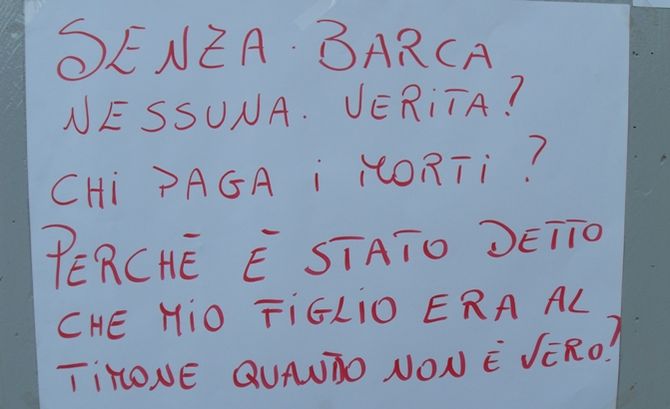 SENZA. BARCA
NESSUNA. VERITA?
CHI PAGA I MORTI?
PERCHÈ È STATO DETTO
CHE MIO FIGLIO ERA AL
TIMONE QUANDO NON È VERO?